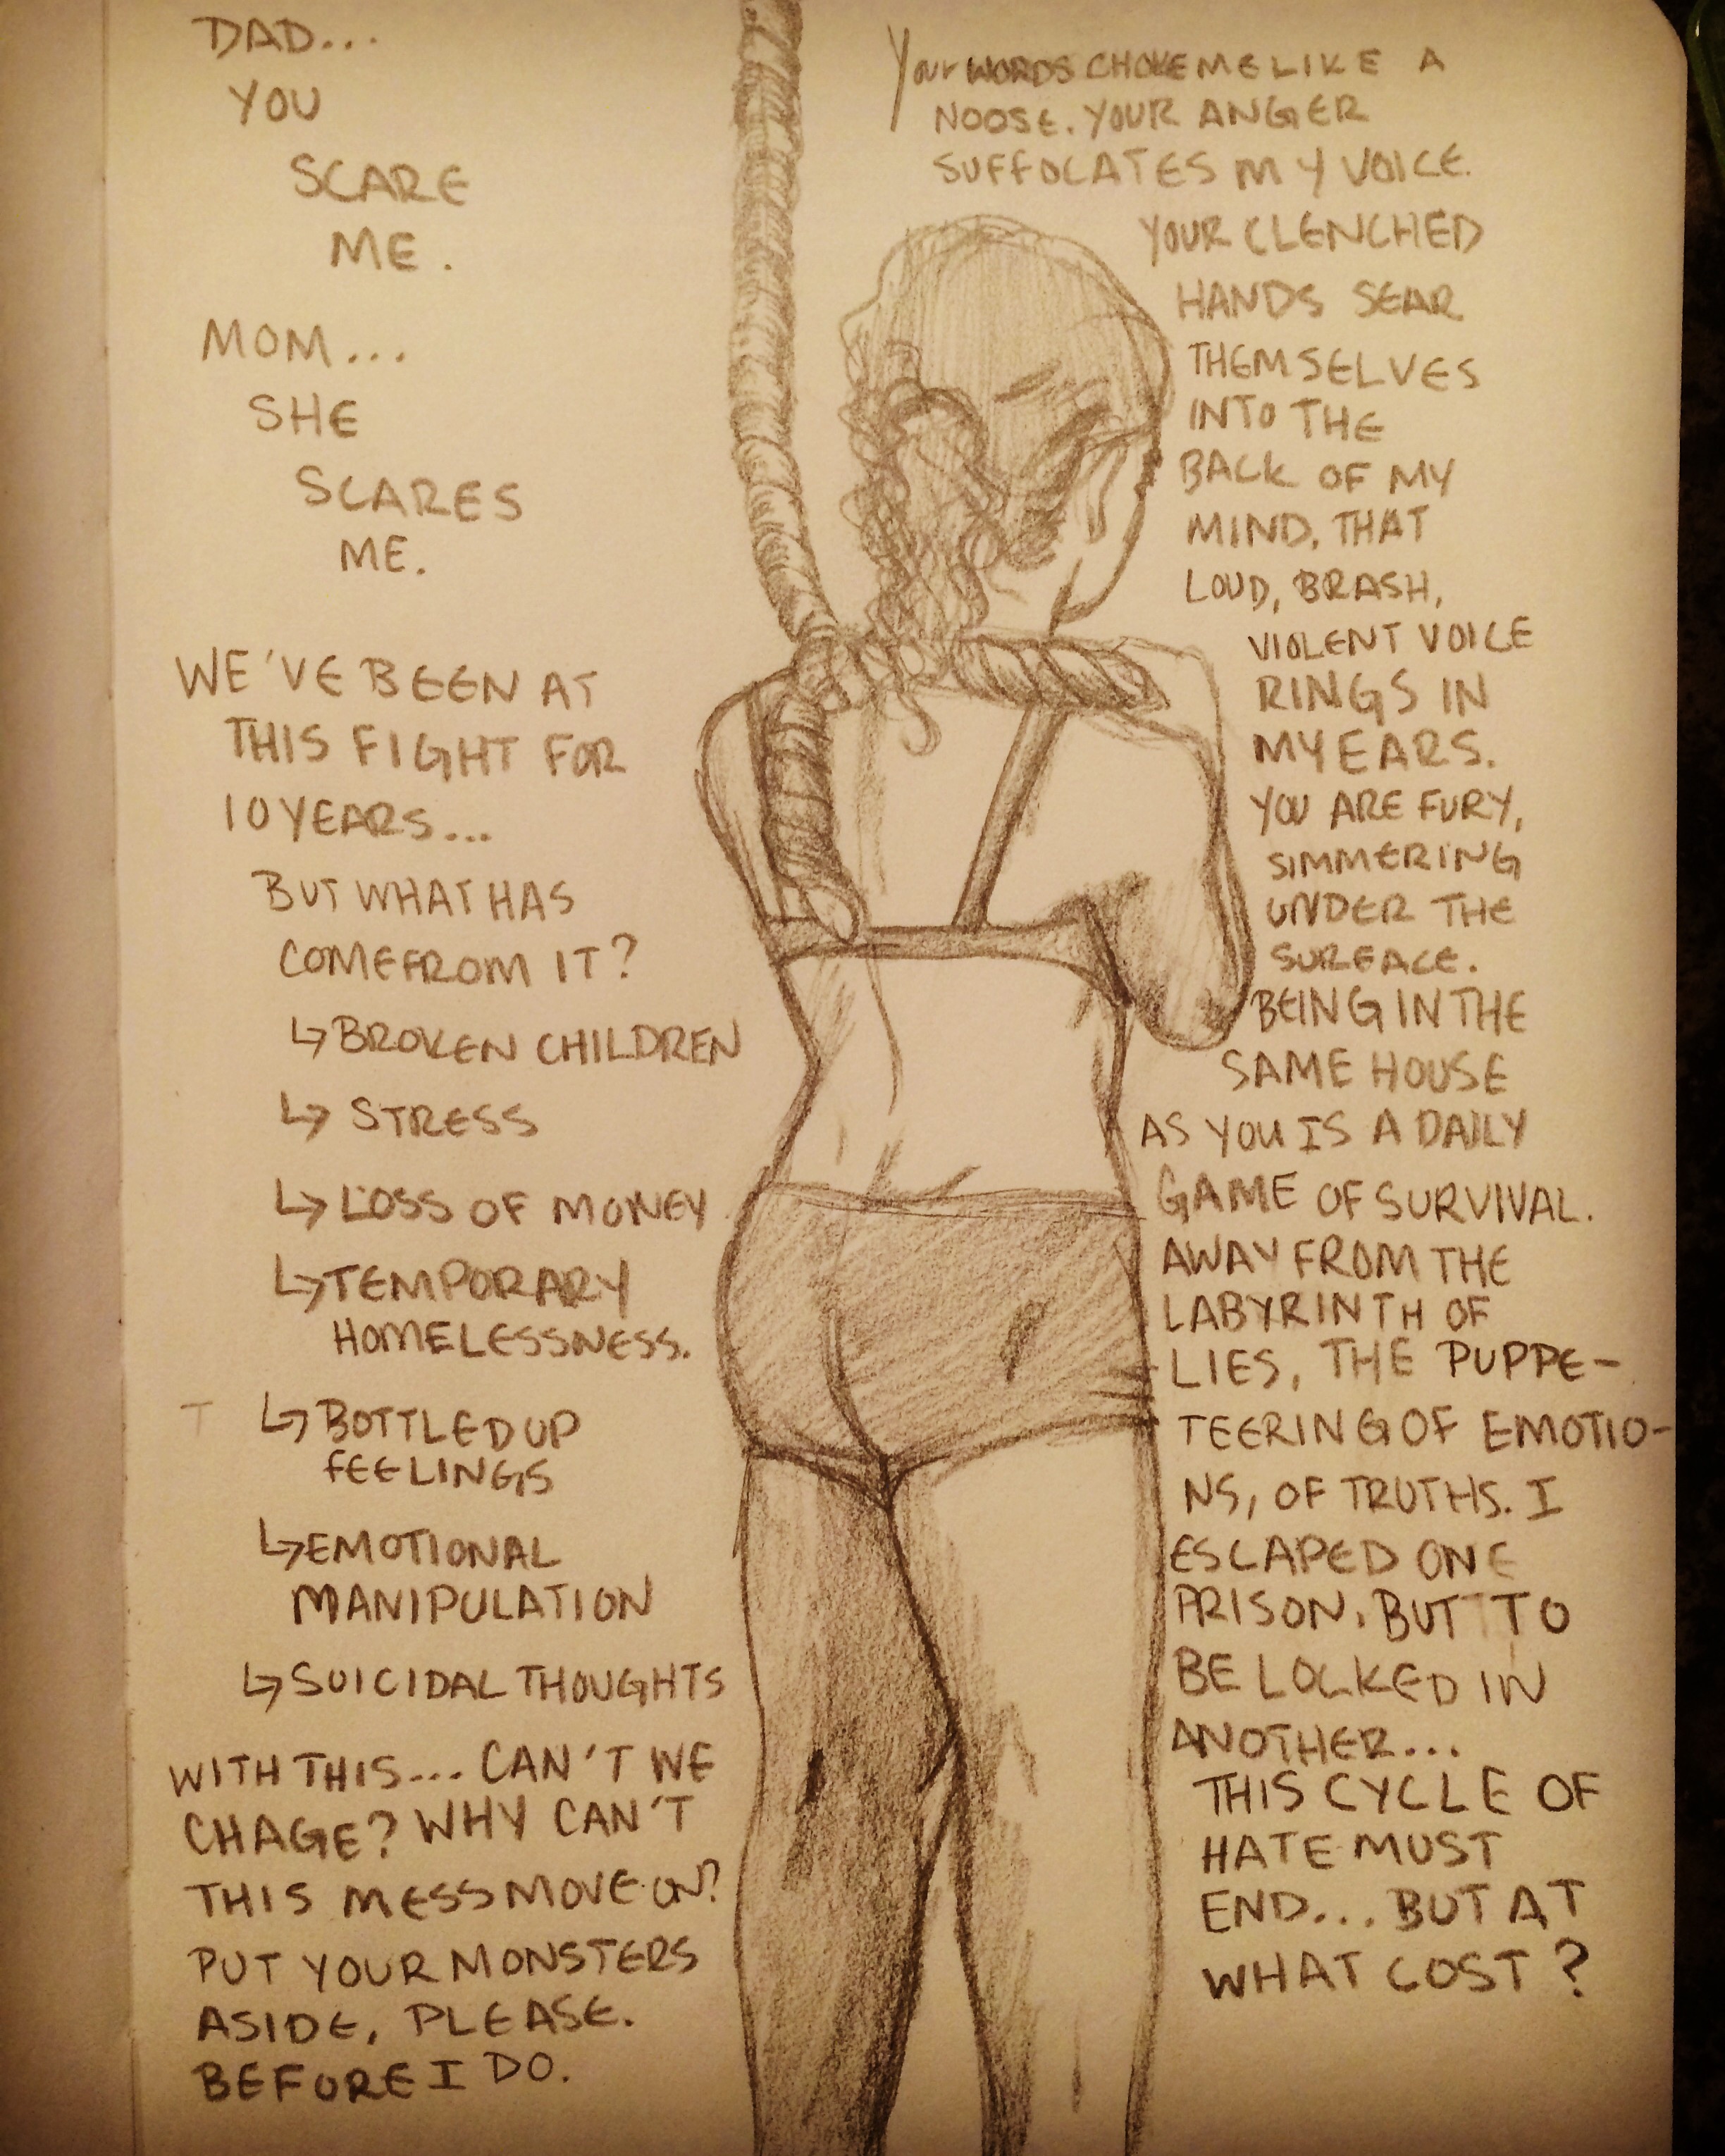 DAD...
YOU
SCARE
ME.
MOM...
SHE
SCARES
ME.
WE'VE BEEN AT
THIS FIGHT FOR
10 YEARS...
BUT WHAT HAS
COME FROM IT?
↳ BROKEN CHILDREN
↳ STRESS
↳ LOSS OF MONEY
↳ TEMPORARY
HOMELESSNESS.
T ↳ BOTTLED UP
FEELINGS
↳ EMOTIONAL
MANIPULATION
↳ SUICIDAL THOUGHTS
WITH THIS... CAN'T WE
CHAGE? WHY CAN'T
THIS MESS MOVE ON?
PUT YOUR MONSTERS
ASIDE, PLEASE.
BEFORE I DO.
Your WORDS CHOKE ME LIKE A
NOOSE. YOUR ANGER
SUFFOCATES MY VOICE.
YOUR CLENCHED
HANDS SEAR
THEMSELVES
INTO THE
BACK OF MY
MIND, THAT
LOUD, BRASH,
VIOLENT VOICE
RINGS IN
MY EARS.
YOU ARE FURY,
SIMMERING
UNDER THE
SURFACE.
BEING IN THE
SAME HOUSE
AS YOU IS A DAILY
GAME OF SURVIVAL.
AWAY FROM THE
LABYRINTH OF
LIES, THE PUPPE-
TEERING OF EMOTIO-
NS, OF TRUTHS. I
ESCAPED ONE
PRISON, BUT TO
BE LOCKED IN
ANOTHER...
THIS CYCLE OF
HATE MUST
END... BUT AT
WHAT COST?